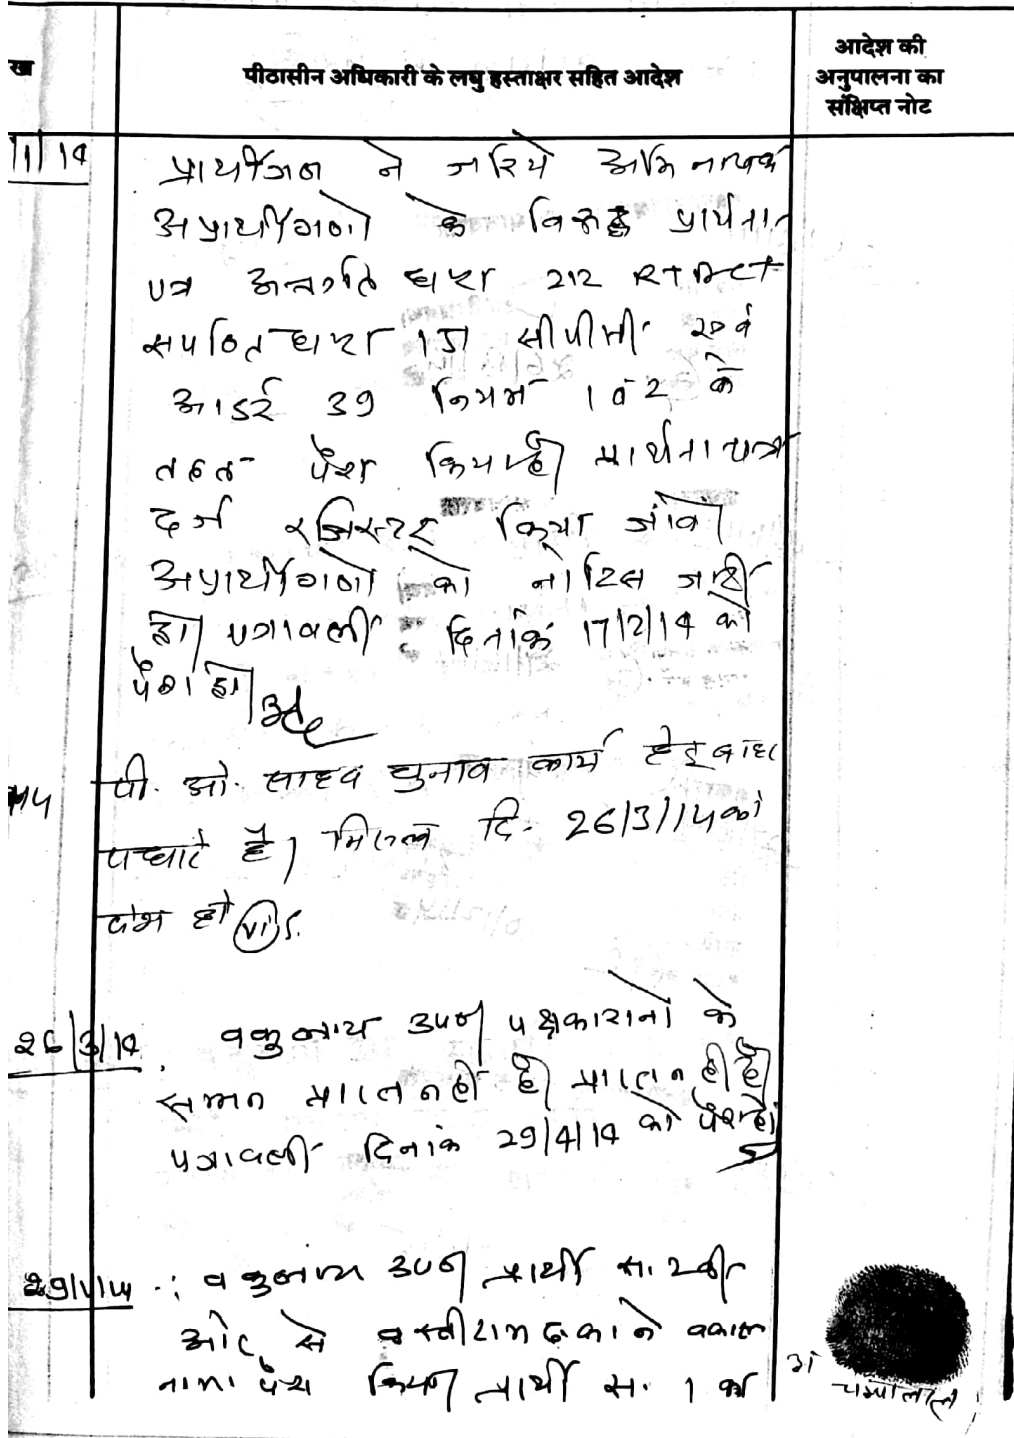 ख
पीठासीन अधिकारी के लघु हस्ताक्षर सहित आदेश
आदेश की
अनुपालना का
संक्षिप्त नोट
/1/14
प्रार्थीगण ने जरिये अभिभाषक
अप्रार्थीगणो के विरुद्ध प्रार्थना
पत्र अन्तर्गत धारा 212 RTAct
सपठित धारा 151 सीपीसी एवं
आर्डर 39 नियम 1 व 2 के
तहत पेश किया है। प्रार्थना पत्र
दर्ज रजिस्टर किया जावे।
अप्रार्थीगणो को नोटिस जारी
हो। पत्रावली दिनांक 17/2/14 को
पेश हो।
पी. ओ. साहब चुनाव कार्य हेतु बाहर
पधारे है। मिसल दि. 26/3/14 को
पेश हो
26/3/14
वकुलाय उप० पक्षकारानो के
समन प्राप्त नहीं है।
पत्रावली दिनांक 29/4/14 को पेश हो।
वकुलाय उप० प्रार्थी स. 2 की
ओर से ने वकालत
नामा पेश किया। प्रार्थी स. 1 का
चम्पालाल